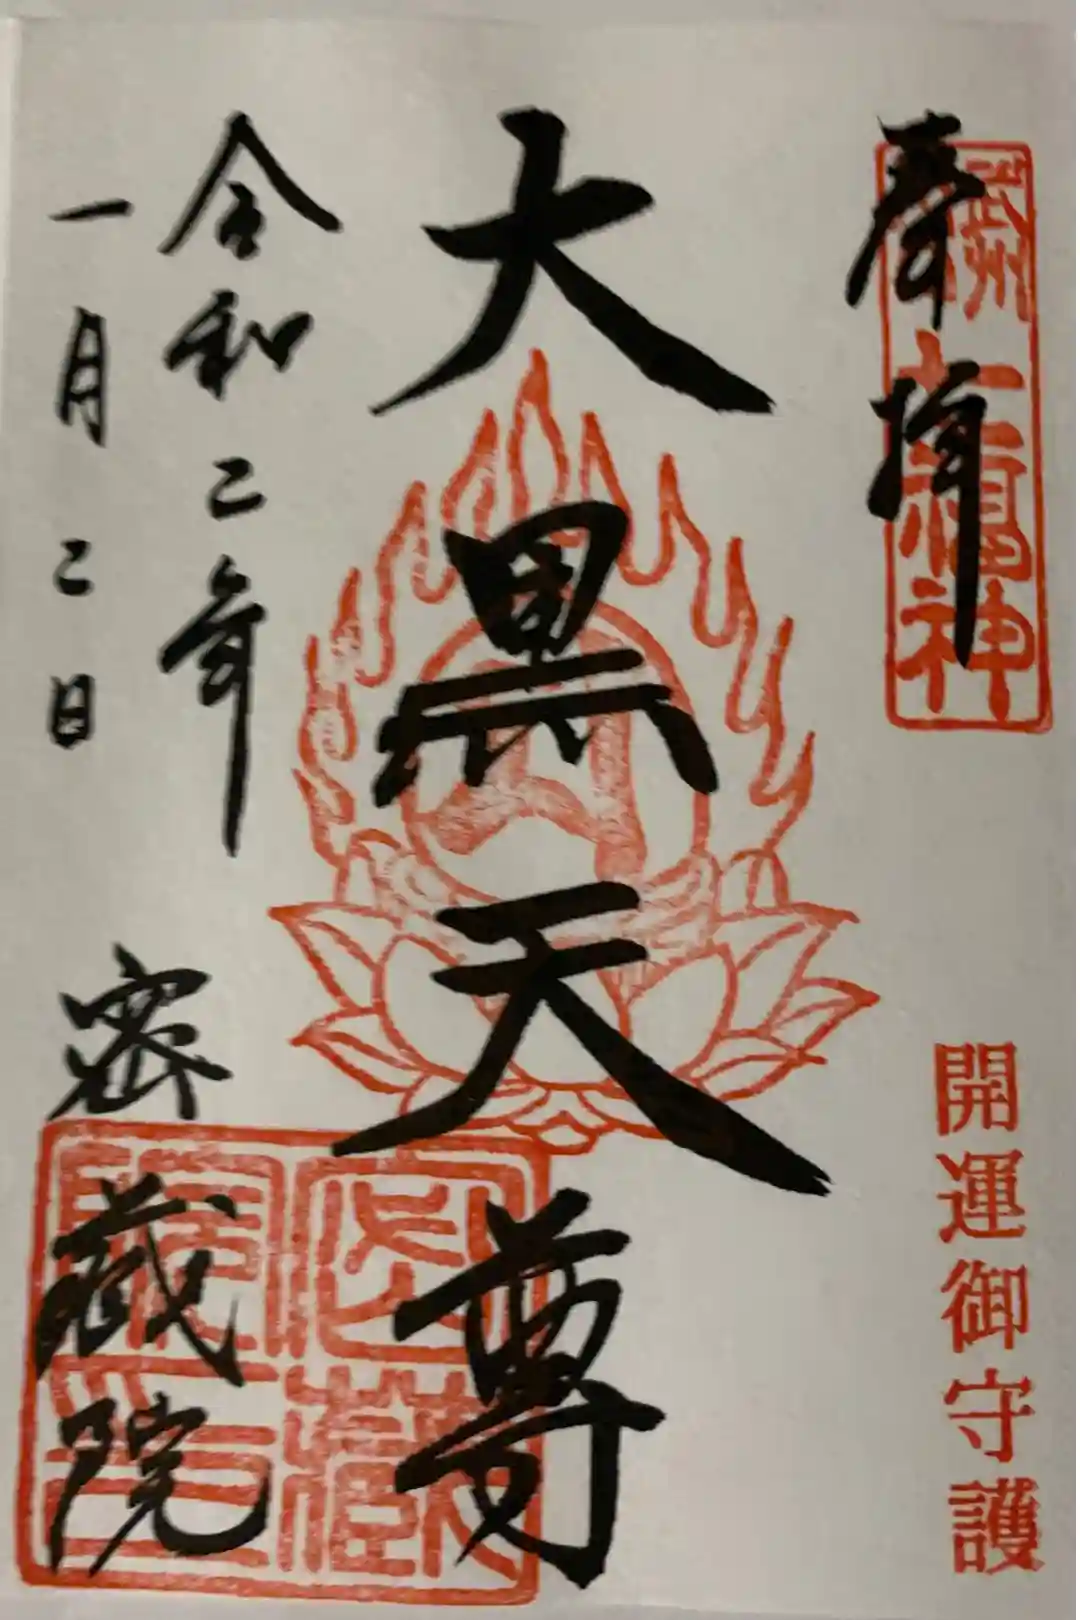 奉拝
武州
七福神
開運御守護
大黒天尊
令和二年
一月二日
密蔵院